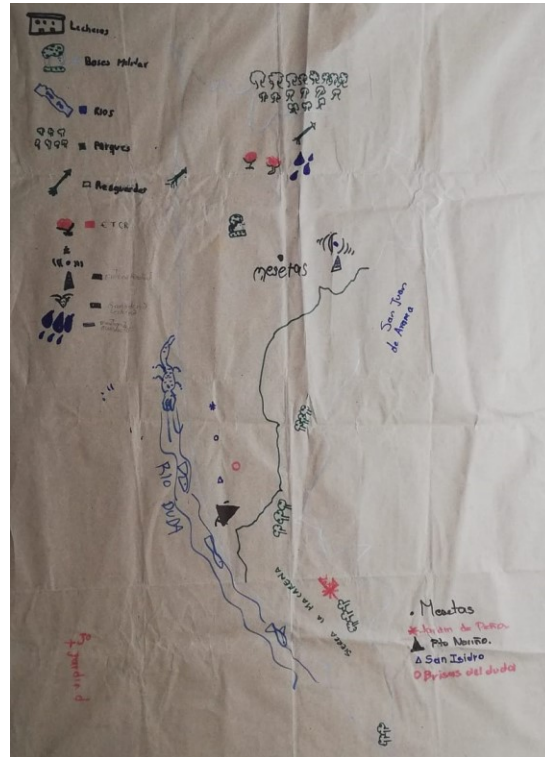 Lecheros
Bases Militar
Rios
Parques
Resguardos
ETCR
mesetas
San Juan
de Arama
RIO DUDA
SERRA LA MACARENA
Mesetas
Jardin de Peñas
Pto Nariño.
San Isidro
Brisas del duda